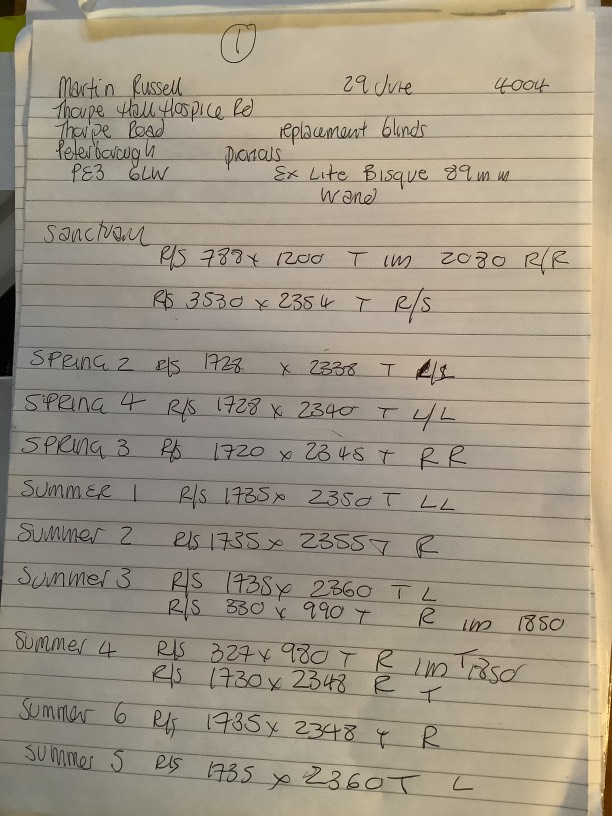 1
Martin Russell 29 June 4004
Thorpe Hall Hospice Rd
Thorpe Road replacement blinds
Peterborough
PE3 6LW Ex Lite Bisque 89mm
Wand
Sanctuary
R/S 788 x 1200 T im 2080 R/R
R/S 3530 x 2354 T R/S
SPRING 2 R/S 1728 x 2338 T
SPRING 4 R/S 1728 x 2340 T L/L
SPRING 3 R/S 1720 x 2345 T RR
SUMMER 1 R/S 1735 x 2350 T LL
Summer 2 R/S 1735 x 2355 T R
Summer 3 R/S 1735 x 2360 T L
R/S 330 x 990 T R im 1850
Summer 4 R/S 327 x 980 T R im T 1850
R/S 1730 x 2348 R T
Summer 6 R/S 1735 x 2348 T R
Summer 5 R/S 1735 x 2360 T L